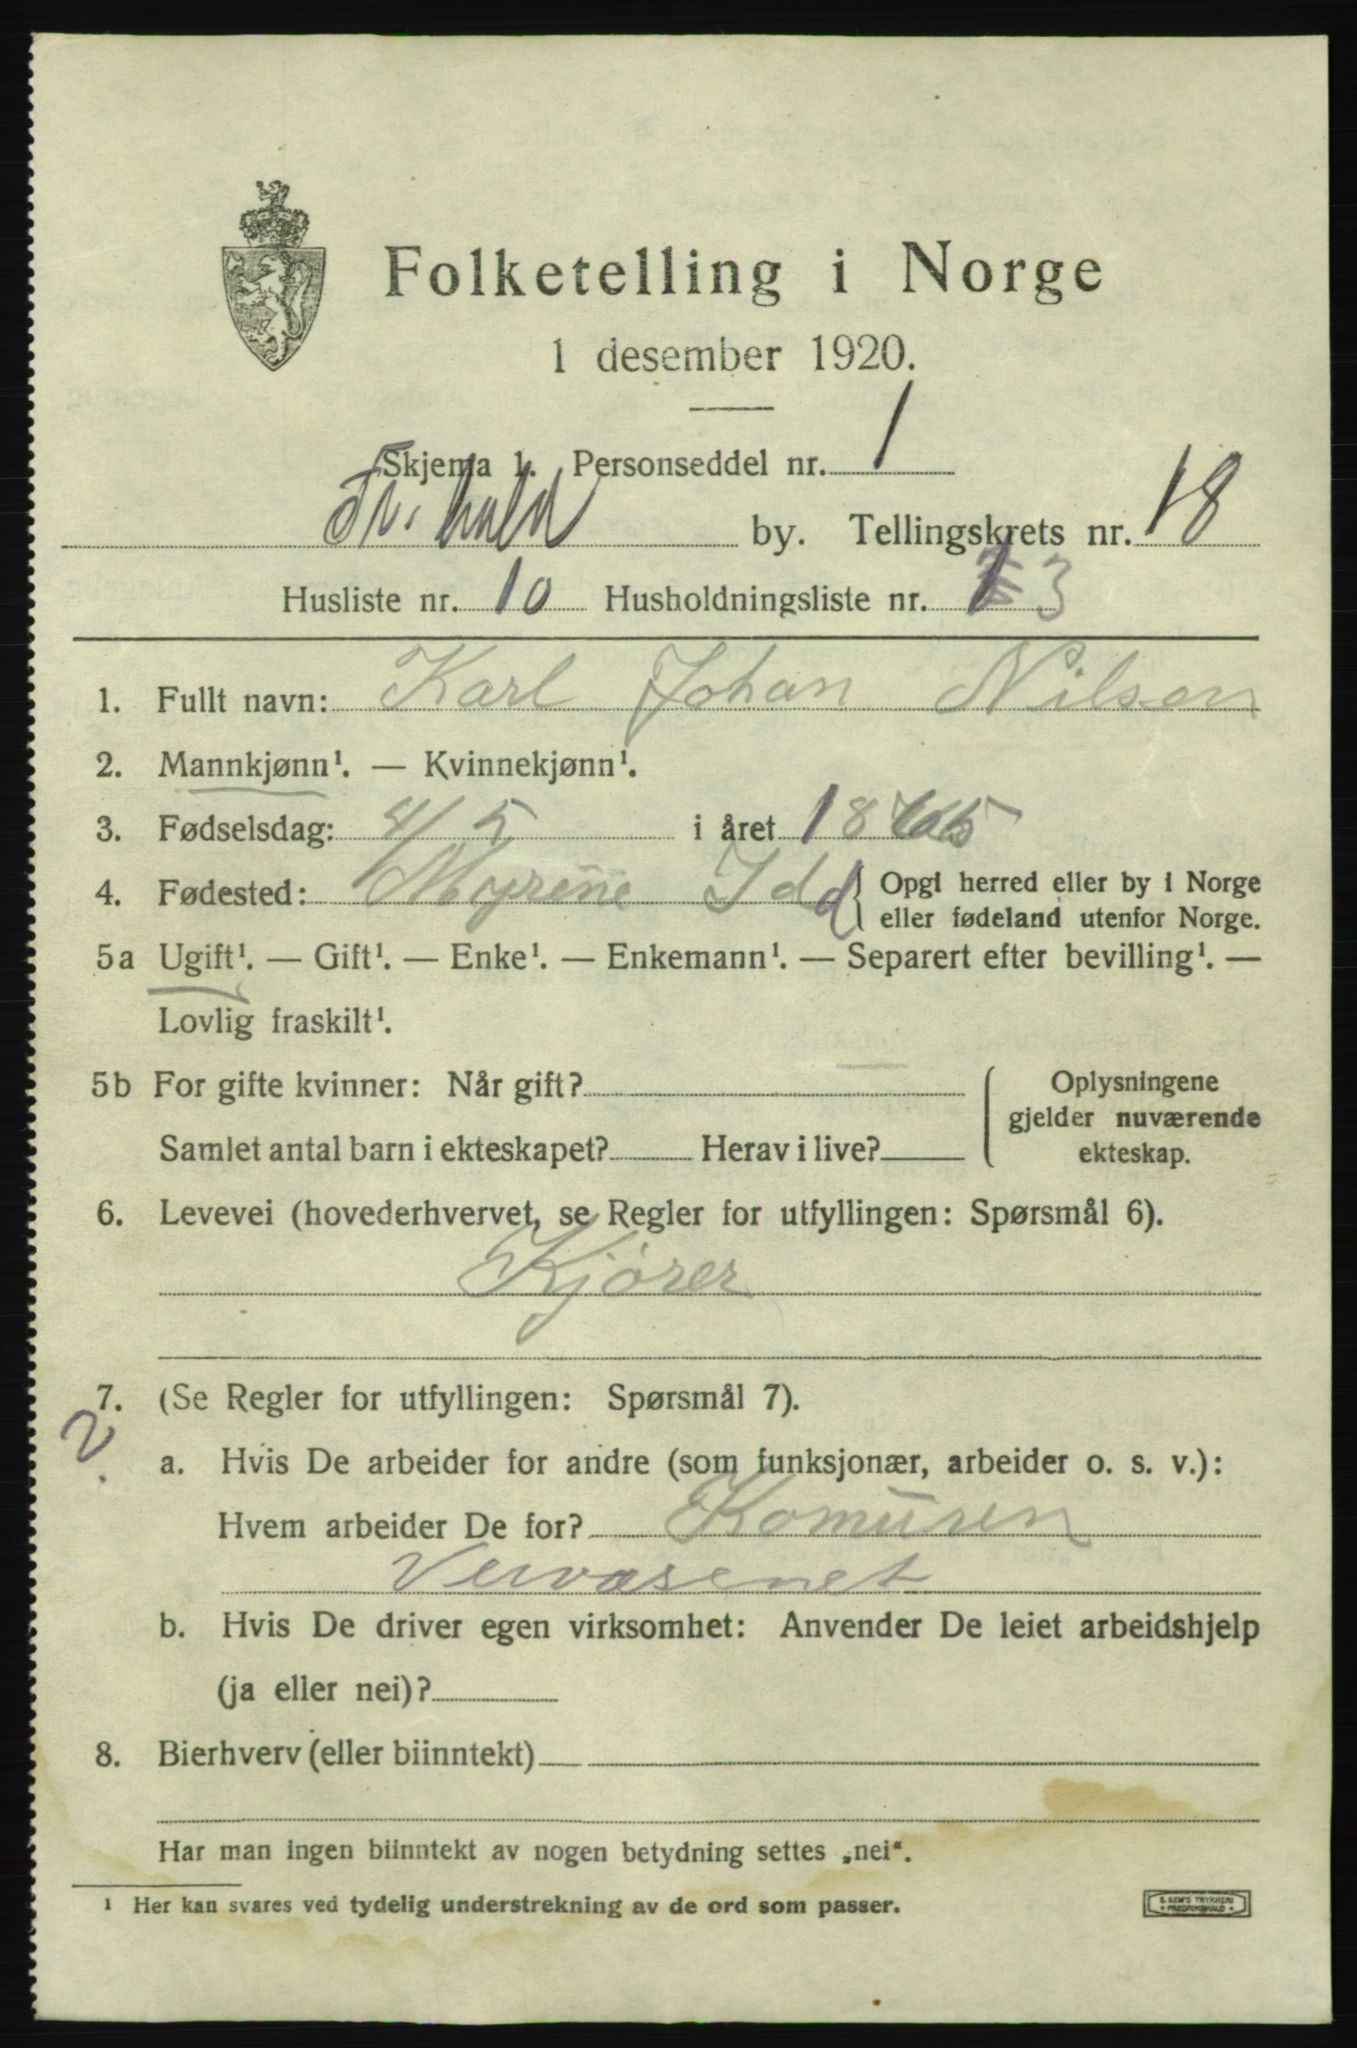 Folketelling i Norge
1 desember 1920.
Skjema 1. Personseddel nr. 1
Fr.hald by. Tellingskrets nr. 18
Husliste nr. 10 Husholdningsliste nr. 3
1. Fullt navn: Karl Johan Nilsen
2. Mannkjønn¹. — Kvinnekjønn¹.
3. Fødselsdag: 4/5 i året 18
4. Fødested: Myrene Idd { Opgi herred eller by i Norge
eller fødeland utenfor Norge.
5a Ugift¹. — Gift¹. — Enke¹. — Enkemann¹. — Separert efter bevilling¹. —
Lovlig fraskilt¹.
5b For gifte kvinner: Når gift? { Oplysningene
gjelder nuværende
Samlet antal barn i ekteskapet? Herav i live? ekteskap.
6. Levevei (hovederhvervet, se Regler for utfyllingen: Spørsmål 6).
Kjörer
7. (Se Regler for utfyllingen: Spørsmål 7).
?
a. Hvis De arbeider for andre (som funksjonær, arbeider o. s. v.):
Hvem arbeider De for? Komunen
Veivæsenet
b. Hvis De driver egen virksomhet: Anvender De leiet arbeidshjelp
(ja eller nei)?
8. Bierhverv (eller biinntekt) —
Har man ingen biinntekt av nogen betydning settes „nei“.
¹ Her kan svares ved tydelig understrekning av de ord som passer.
E. SEM'S TRYKKERI
• FREDRIKSHALD •